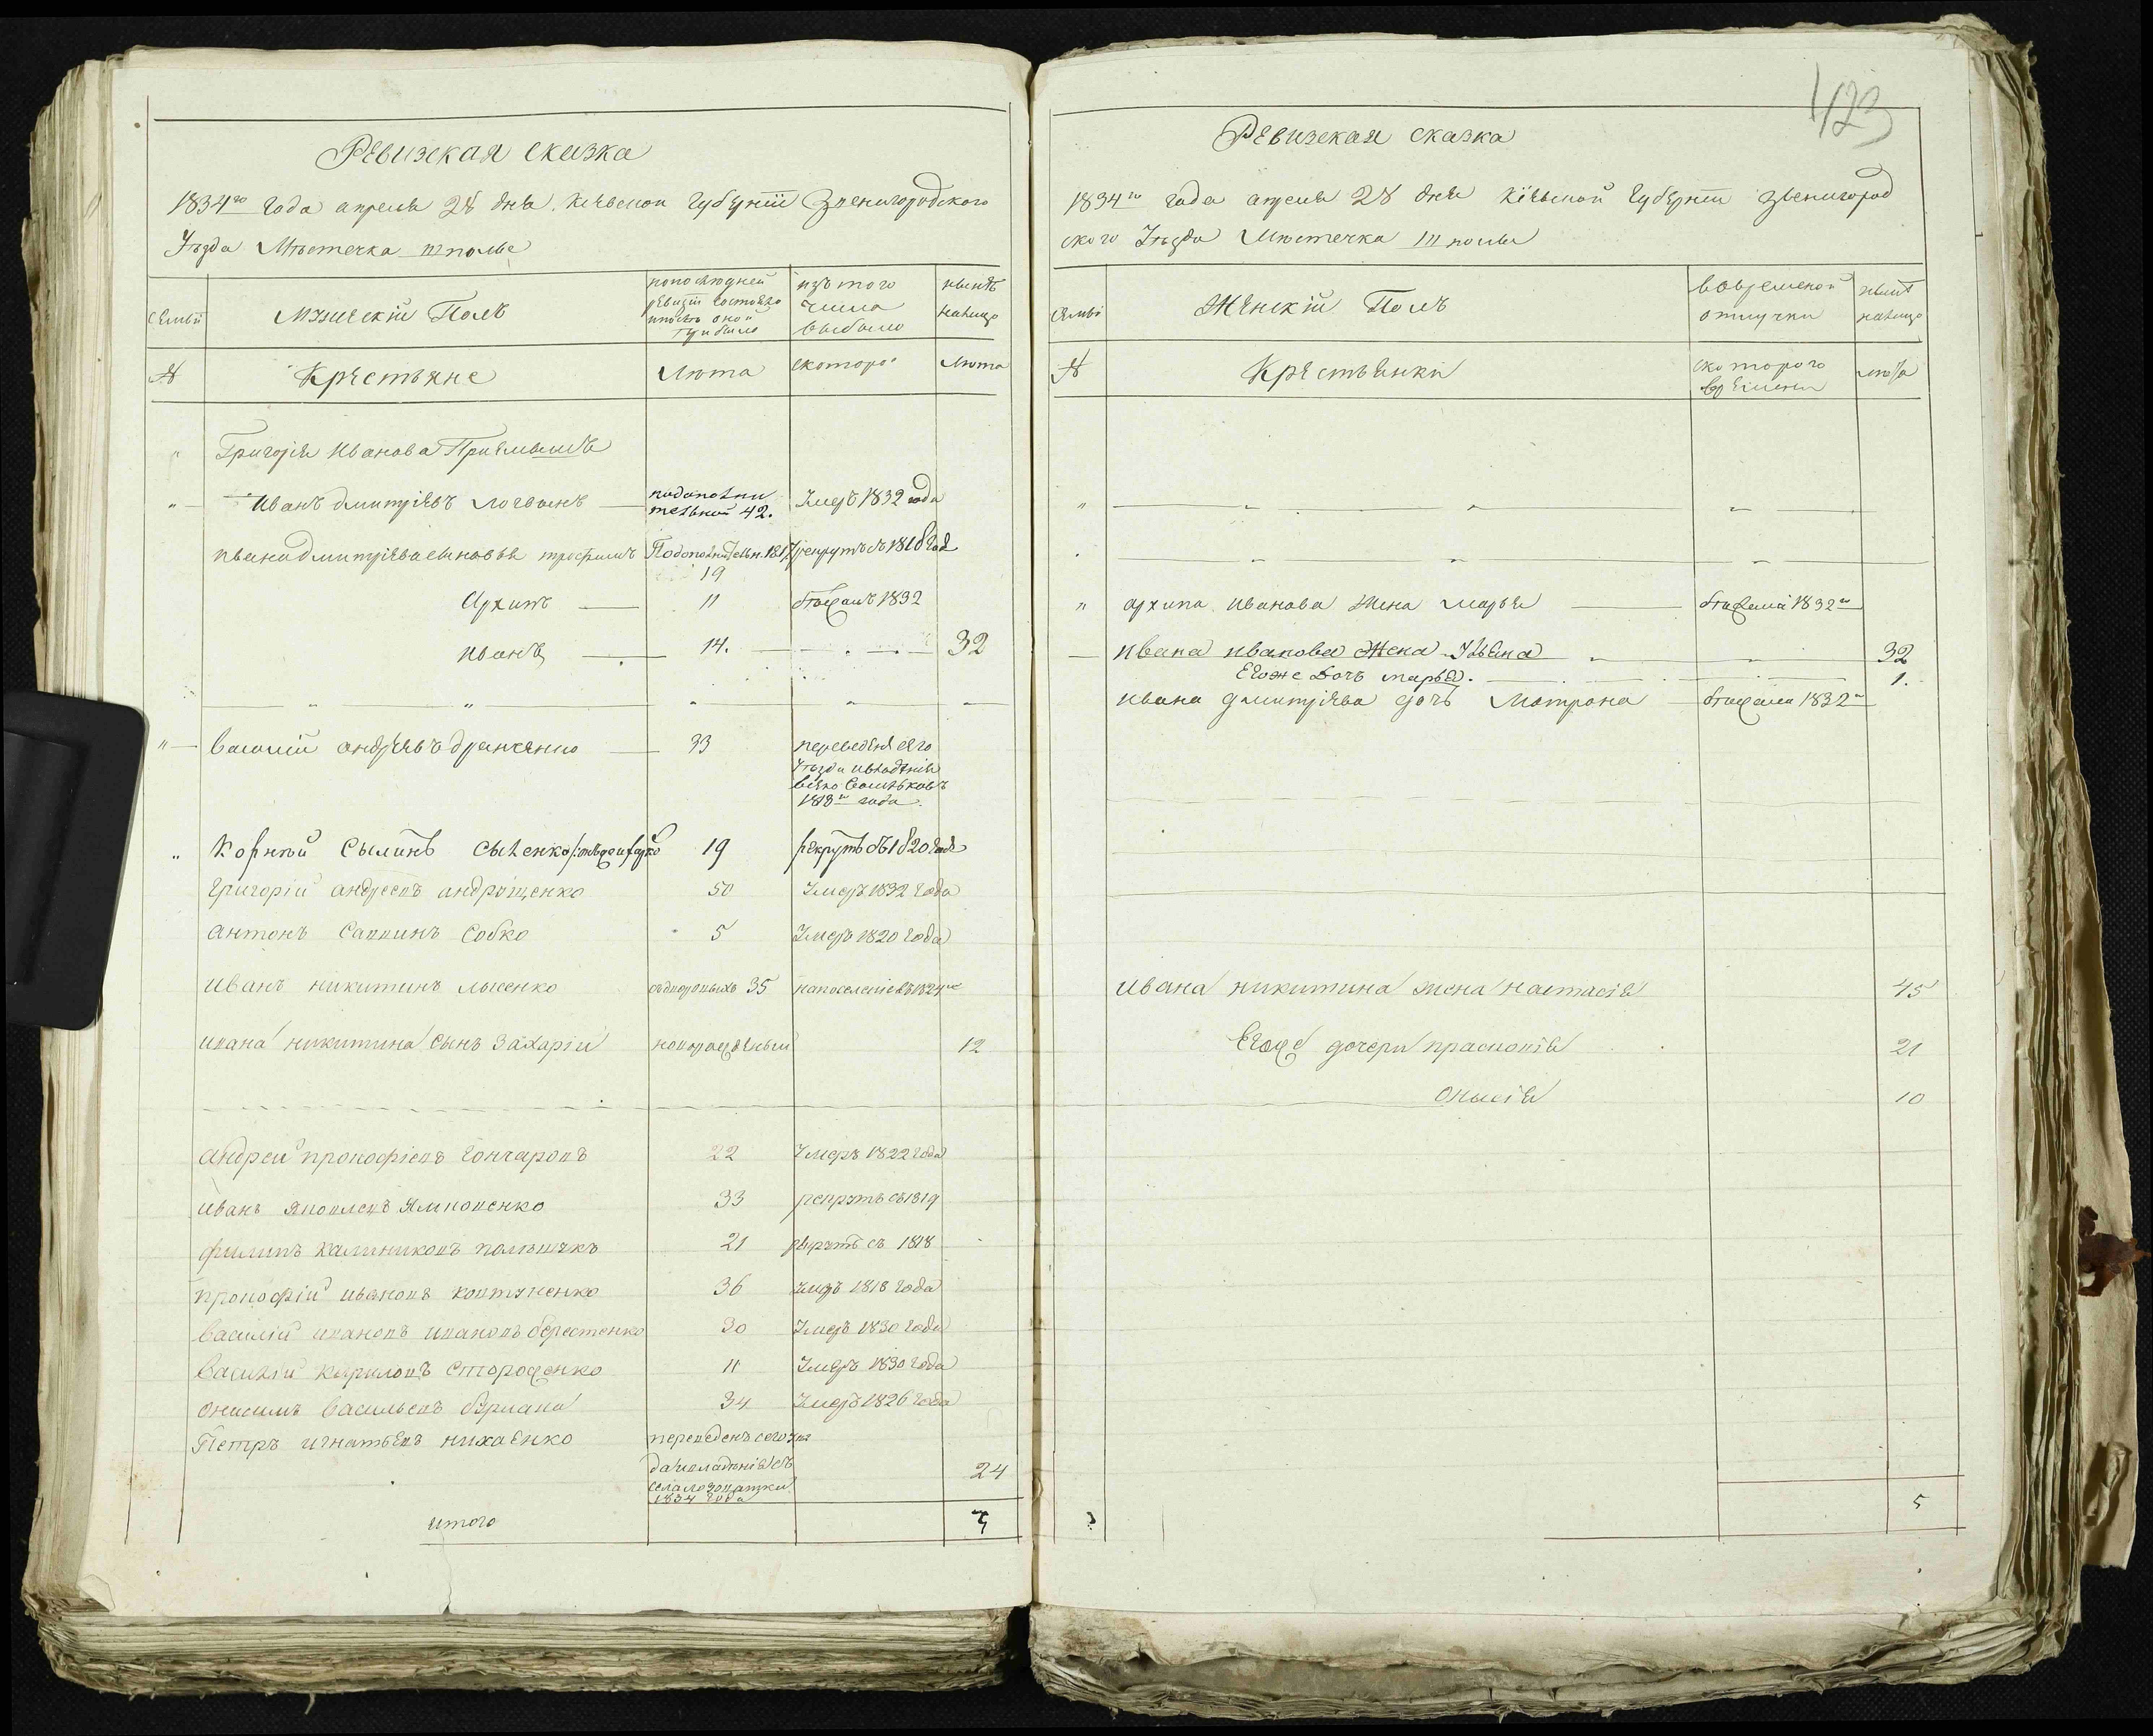 423
Ревизская сказка
1834го года апреля 28 дня Киевской губернии Звенигородского
Уезда Мѣстечка Шполы
семьи
Мужескій Полъ
по последней ревизіи состояло и после оной прибыло
изъ того числа выбыло
нынѣ налицо
№
Крестьяне
Лѣта
скоторо
Лѣта
" Григорія Иванова Приемышъ
" Иванъ дмитріевъ логвинъ — 42. Умеръ 1832 года
ивана дмитріева сыновья трофимъ 19 рекрутъ съ 1818 года
Архипъ — 11 бѣжалъ 1832
иванъ — 14. — 32
" василій андреевъ — 33 переведенъ сего
Уезда
1818го года
" Корній Сылинъ 19 рекрутъ съ 1820 года
григорій андреевъ андрущенко 50 Умеръ 1832 года
антонъ Саввинъ Собко 5 Умеръ 1820 года
иванъ никитинъ лысенко 35 на поселеніе въ 1824го
ивана никитина сынъ Захарій новорожденый 12
андрей прокофіевъ гончаровъ 22 Умеръ 1822 года
иванъ яковлевъ 33 рекрутъ съ 1819
филипъ калиниковъ 21 рекрутъ съ 1818
прокофій ивановъ ковтуненко 36 умеръ 1818 года
василій ивановъ ивановъ берестенко 30 Умеръ 1830 года
василій кириловъ Стороженко 11 Умеръ 1830 года
онисимъ васильевъ 34 Умеръ 1826 года
Петръ игнатьевъ переведенъ сего уез
да владѣнія съ
села
1834 года
24
итого 3
Ревизская сказка
1834го года апреля 28 дня Кіевской губерніи Звенигород
ского Уезда Мѣстечка Шполы
семьи
Женскій Полъ
во временой отлучки
нынѣ налицо
№
Крестьянки
скоторого времени
лѣта
" архипа иванова жена марья — бѣжала 1832го
ивана иванова жена Ульяна — 32
Егоже дочь марья. — 1.
ивана дмитріева дочь Мотрона — бѣжала 1832го
ивана никитина жена настасія 45
Егоже дочери прасковія 21
онисія 10
5